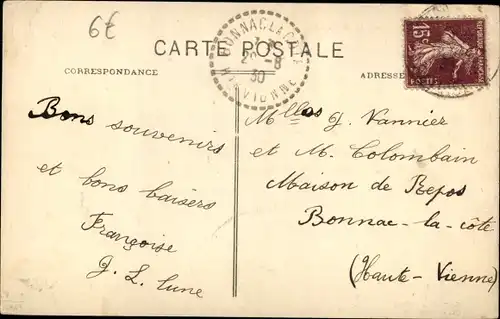 6€
CARTE POSTALE
CORRESPONDANCE
ADRESSE
BONNAC LA COTE
8
30
HTE VIENNE
REPUBLIQUE FRANCAISE
15c
POSTES
Bons souvenirs
et bons baisers
Françoise
J. L.
Mlles J. Vannier
et M. Colombain
Maison de Repos
Bonnac-la-côte
(Haute-Vienne)